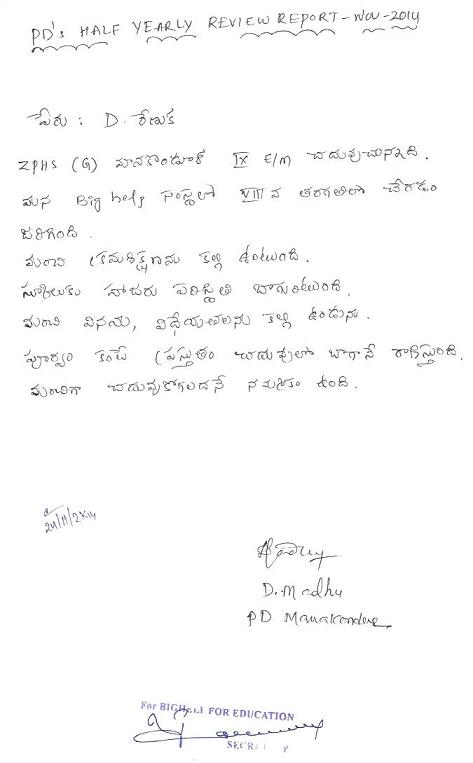 PD's HALF YEARLY REVIEW REPORT - NOV - 2014
పేరు : D. రేణుక
ZPHS (G) మానకొండూర్ IX E/M చదువుచున్నది.
మన Big help సంస్థలో VIII వ తరగతిలో చేరడం
జరిగింది.
మంచి క్రమశిక్షణను కల్గి ఉంటుంది.
స్కూలుకు హాజరు పరిస్థితి బాగుంటుంది.
మంచి వినయ, విధేయతలను కల్గి ఉండును.
పూర్వం కంటే ప్రస్తుతం చదువులో బాగానే రాణిస్తుంది.
మంచిగా చదువుకోగలదనే నమ్మకం ఉంది.
24/11/2014
D. Madhu
PD Manakondur
For BIGHELP FOR EDUCATION
SECRETARY